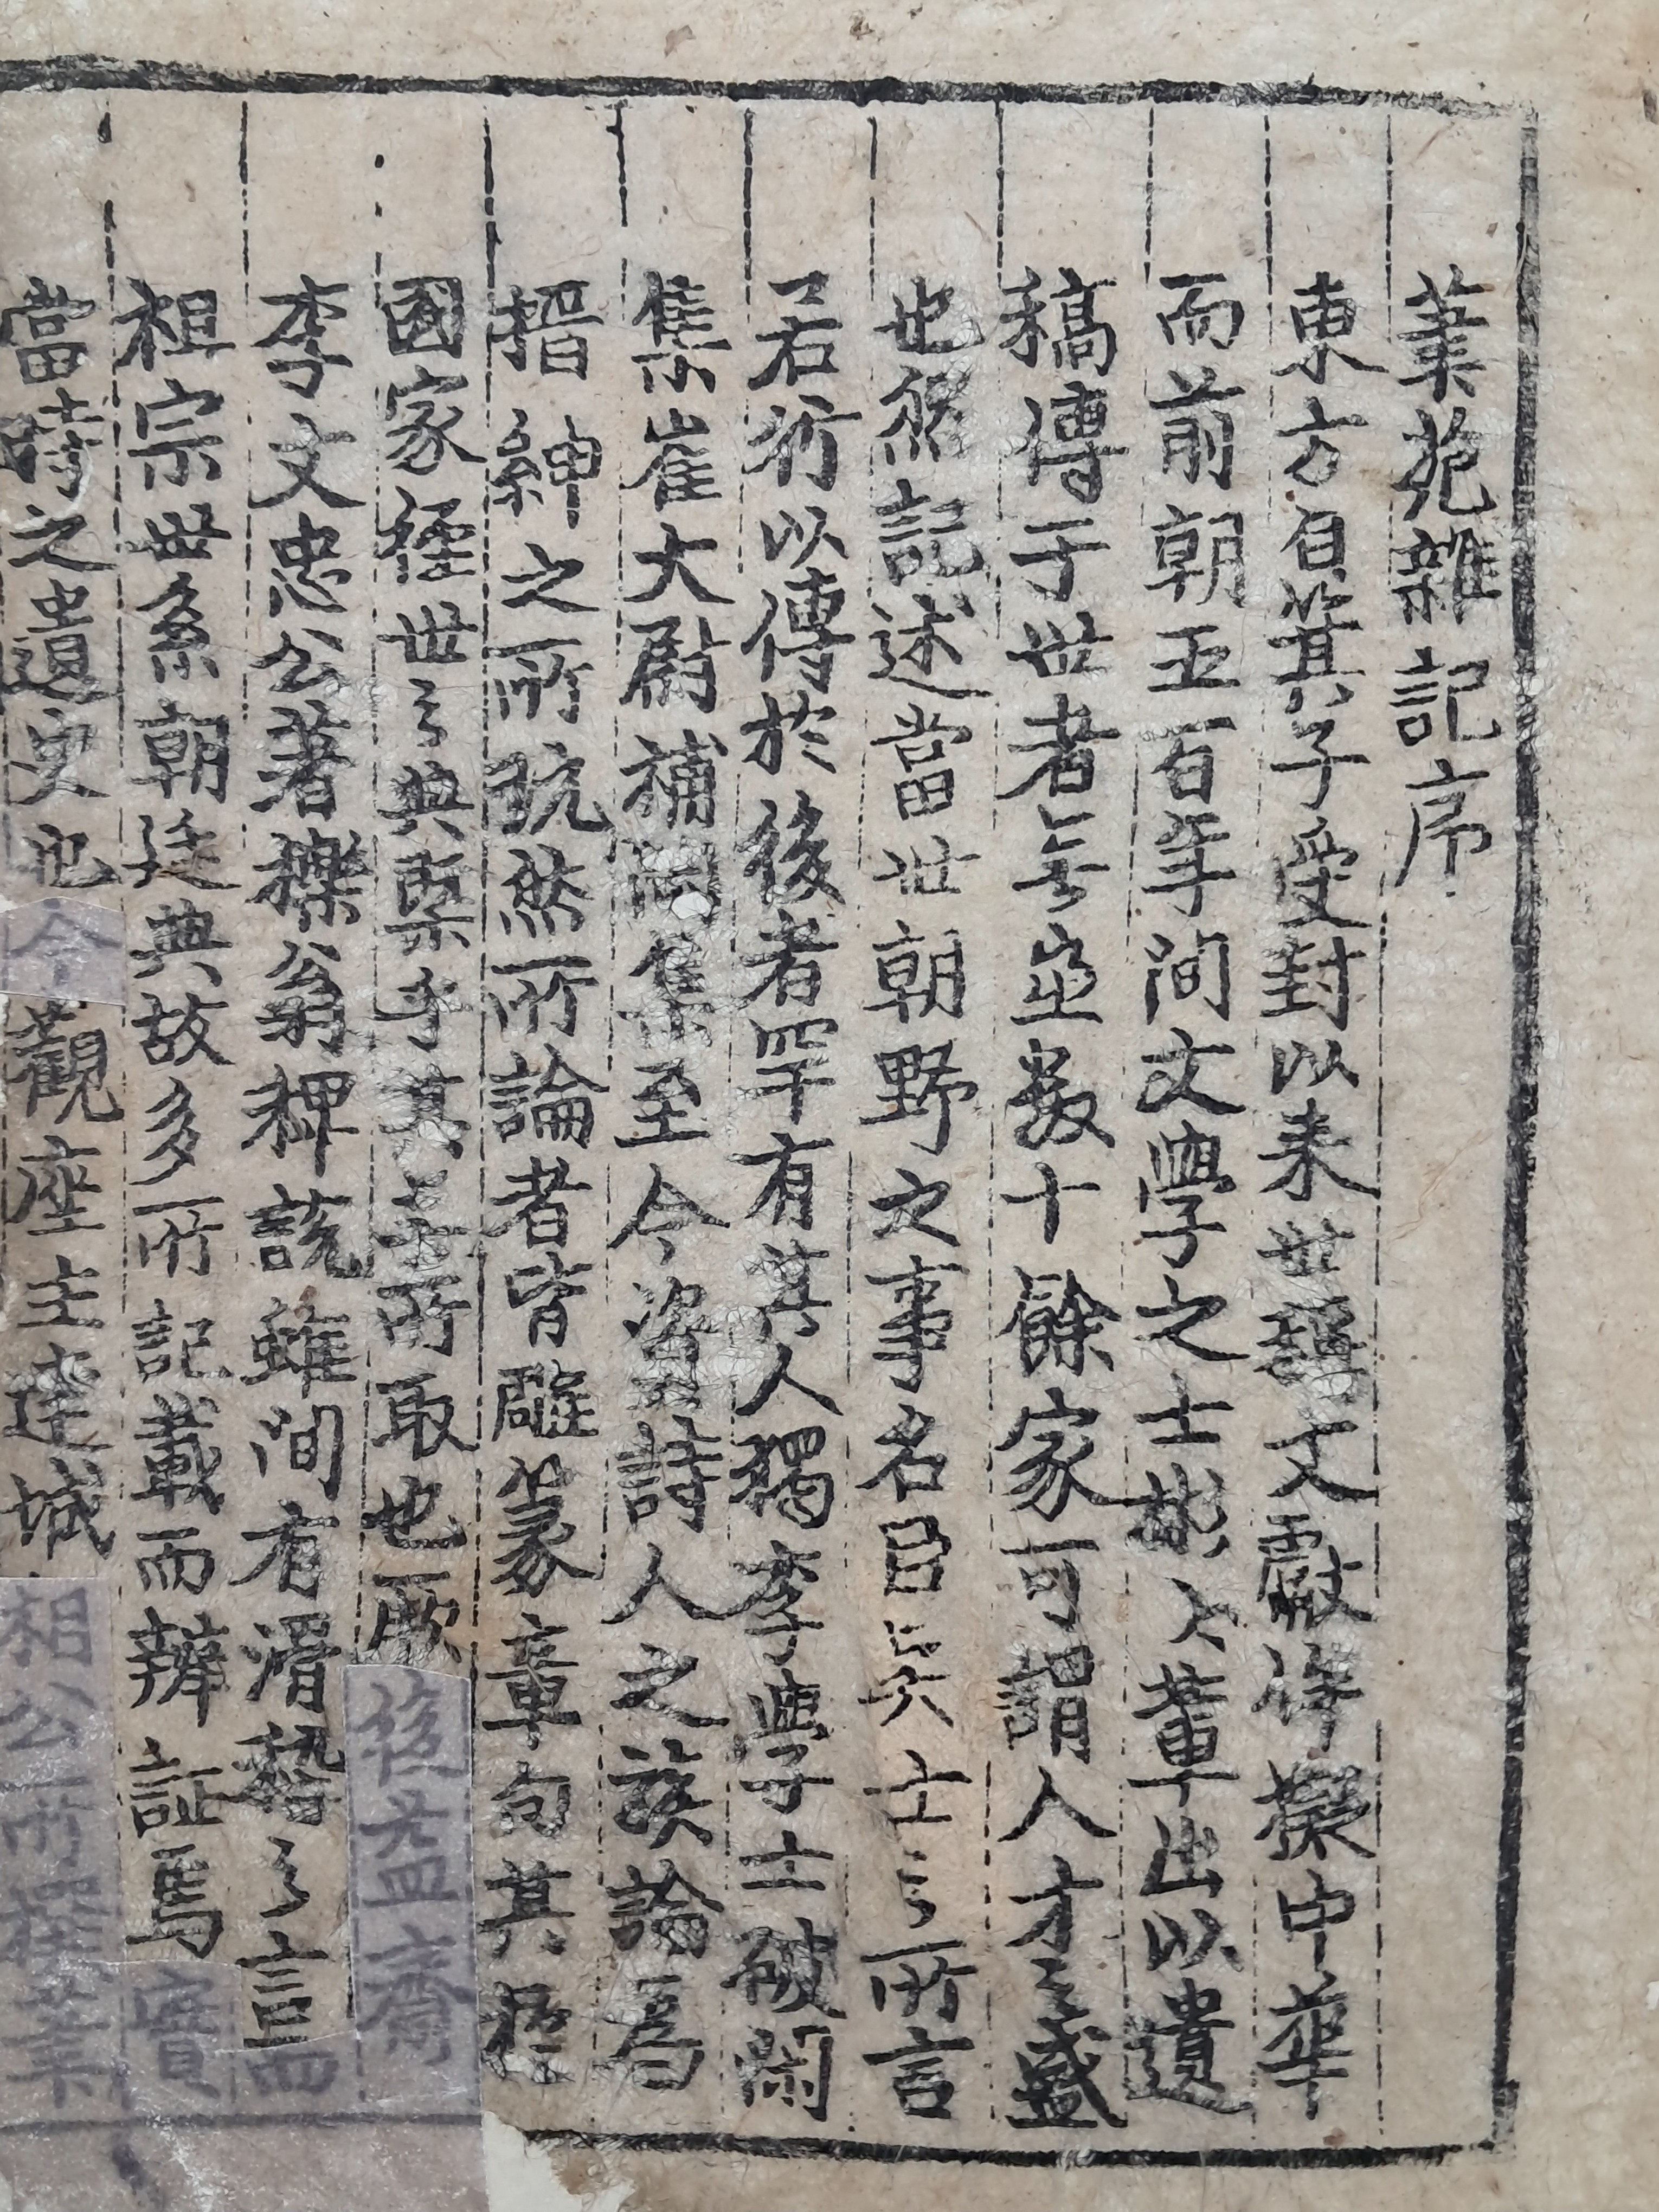 筆苑雜記序
東方自箕子受封以来世稱文獻侔擬中華
而前朝五百年间文學之士彬々輩出以遺
稿傳于世者无慮數十餘家可謂人才之盛
也然記述當世朝野之事名臣賢士之所言
若行以傳於後者罕有其人獨李學士破閑
集崔大尉補閑集至今資詩人之談論爲
搢紳之所玩然所論者皆雕篆章句其於
國家經世之典槩乎其無所取也厥後益齋
李文忠公著櫟翁稗說雖间有滑稽之言而
祖宗世系朝廷典故多所記載而辨證焉實
當時之遺史也今觀座主達城相公所撰筆